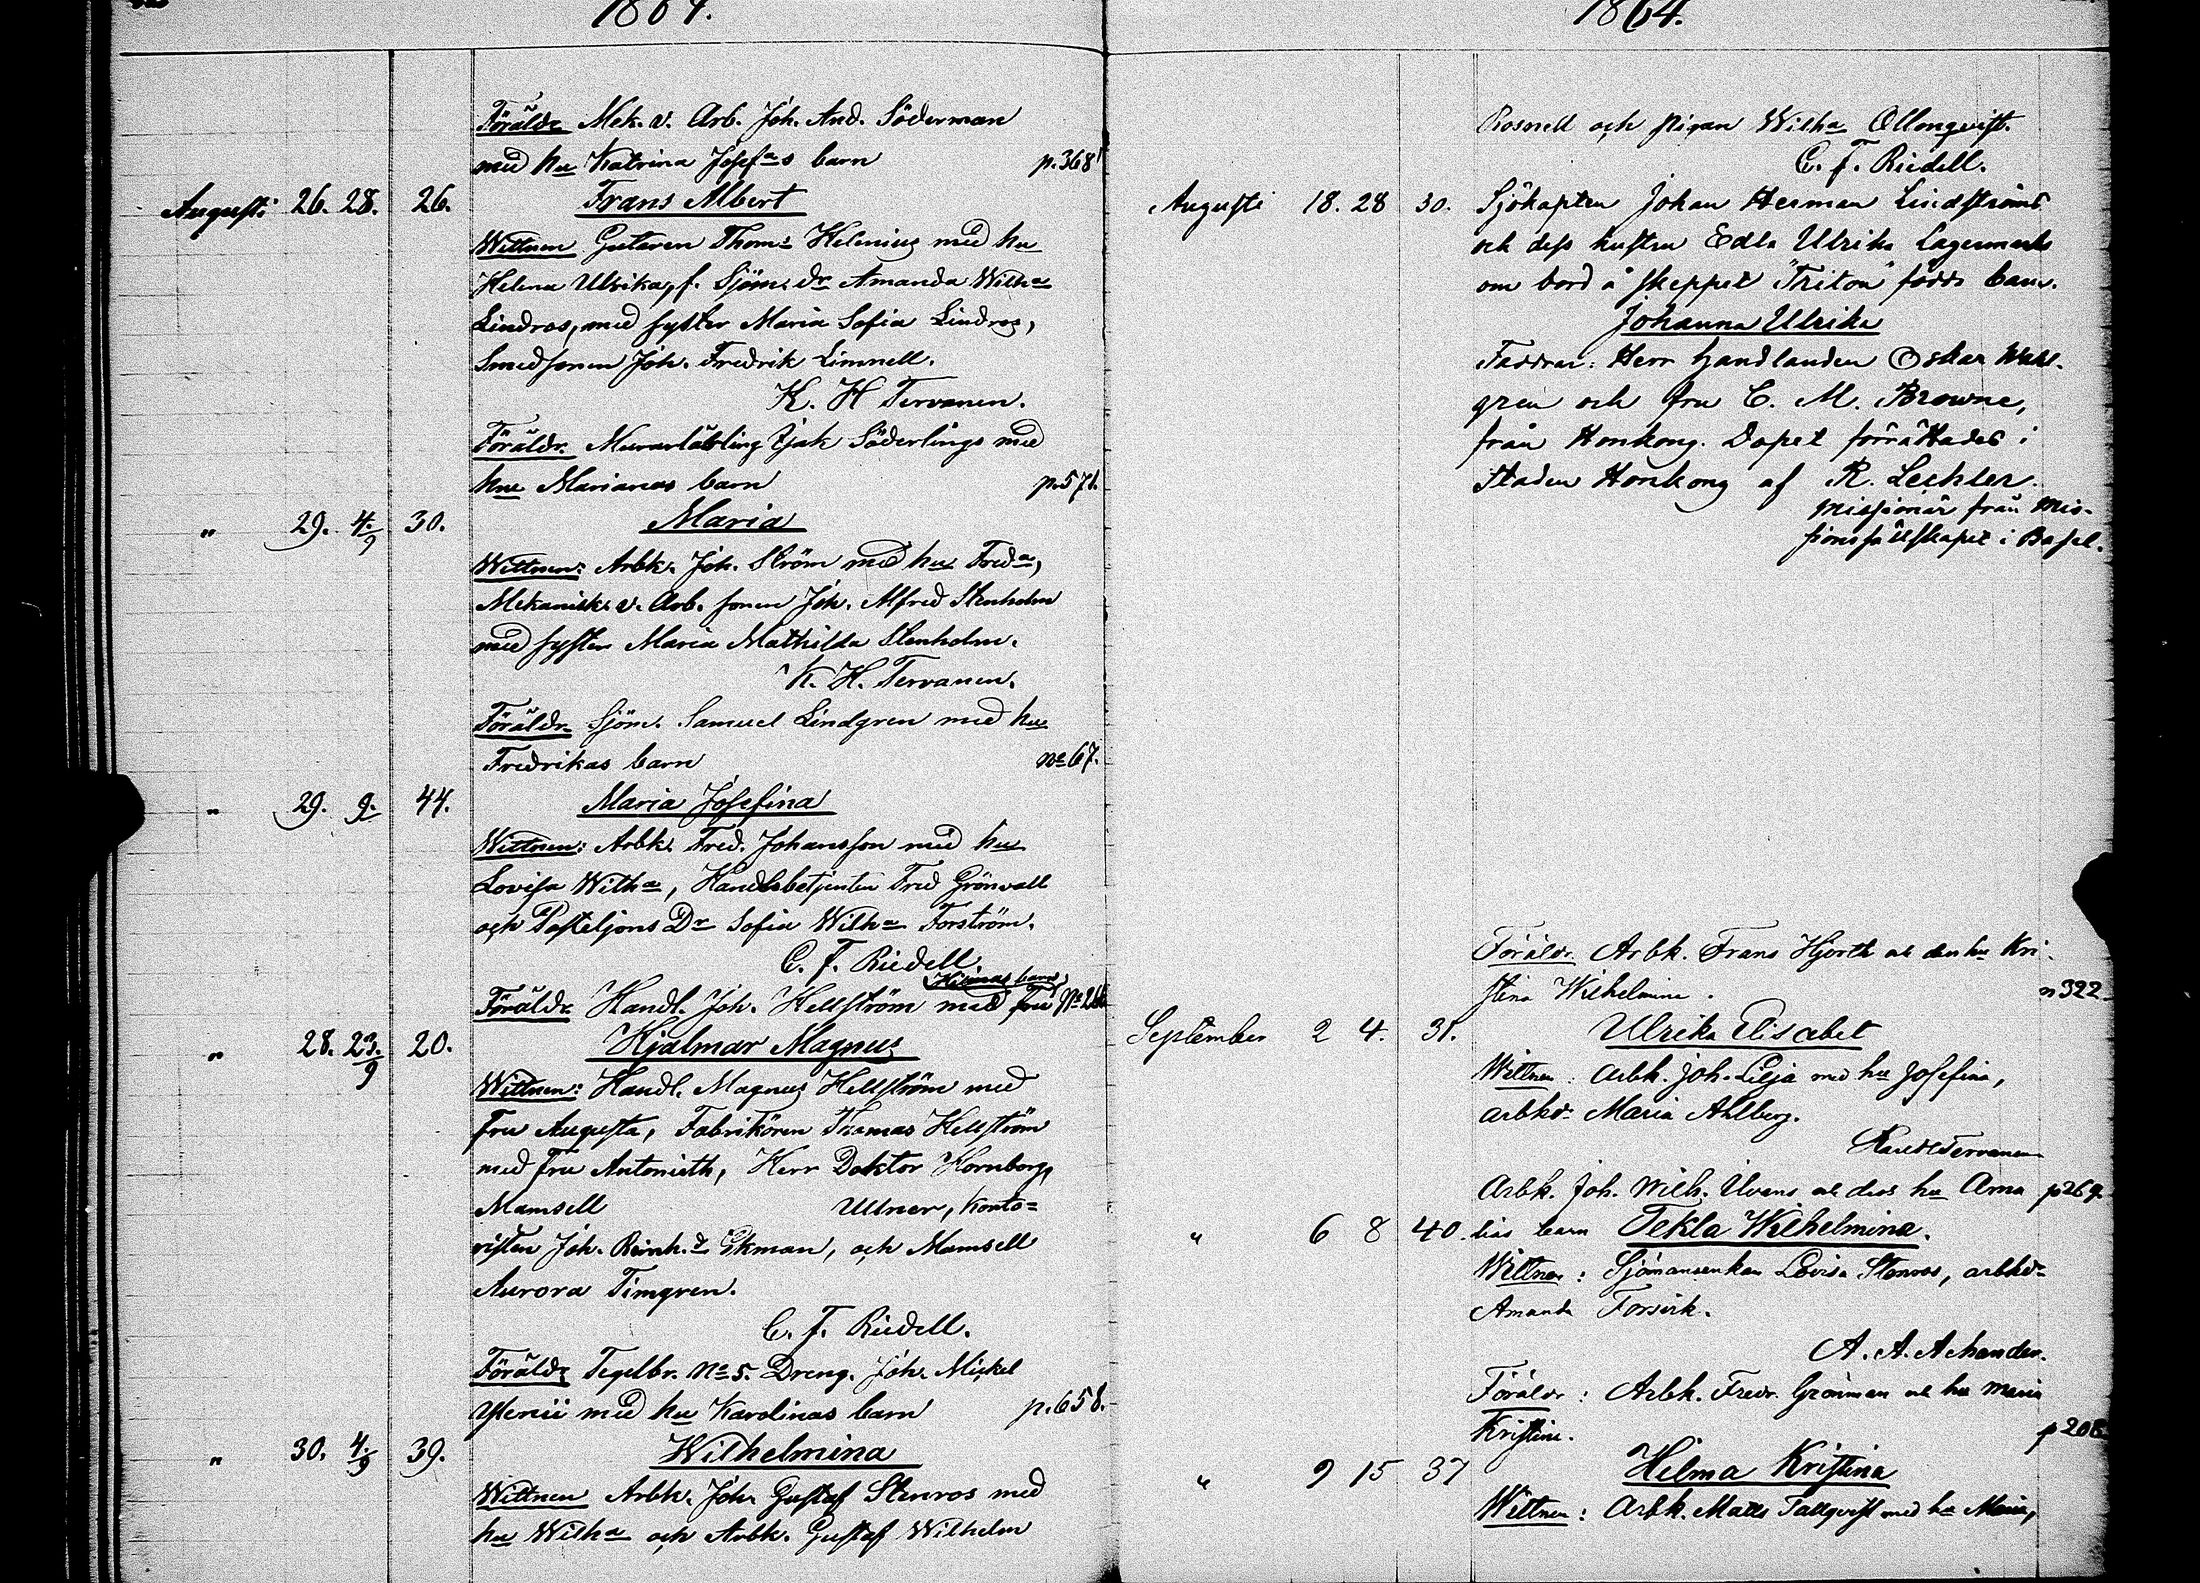 1864.
Föräldr. Mek. v. Arb. Joh. And. Söderman
med hu Katrina Josefas barn p. 368
Augusti 26. 28. 26. Frans Albert
Wittnen Gutaren Thoms Helenius med hu
Helena Ulrika, f. Sjöm. dr Amanda Wilha
Lindros, med syster Maria Sofia Lindros,
Smedsonen Joh. Fredrik Limnell.
K. H Tervanen.
Föräldr. Murarlärling Isak Söderlings med
hus Marianas barn p. 571.
" 29. 4./9 30. Maria
Wittnen: Arbk. Joh. Ström med hu Freda,
Mekanisk. v. Arb. sonen Joh. Alfred Stenholm
med syster Maria Mathilda Stenholm.
K. H. Tervanen.
Föräldr. Sjöm. Samuel Lindgren med hu
Fredrikas barn No 67.
" 29. 9. 44. Maria Josefina
Wittnen: Arbk. Fred. Johansson med hu
Lovisa Wilha, Handelsbetjenten Fred Grönvall
och Postiljons Dr Sofia Wilha Forström.
C. F. Riedell
Föräldr. Handl. Joh. Hellström med fru
" 28. 23./9 20. Hjalmar Magnus
Wittnen: Handl. Magnus Hellström med
Fru Augusta, Fabrikören Thomas Hellström
med Fru Antonieth, Herr Doktor Hornborg,
Mamsell Ulner, Konto=
risten Joh. Reinh.d Ekman, och Mamsell
Aurora Timgren.
C. F. Riedell.
Föräldr Tegelbr. No 5. Dreng. Joh. Mickel
med hu Karolinas barn p. 658.
" 30. 4./9 39. Wilhelmina
Wittnen Arbk. Joh Gustaf Stenros med
hu Wilha och Arbk. Gustaf Wilhelm
1864.
Rosnell och pigan Wilha Ollonqvist.
C. F. Riedell.
Augusti 18. 28 30. Sjökapten Johan Herman Lindströms
och dess hustru Edla Ulrika Lagermarks
om bord å skeppet "Triton" födda barn.
Johanna Ulrika
Faddrar: Herr Handlanden Oskar Wahl-
gren och fru C. M. Browne,
från Honkong. Dopet förrättades i
staden Honkong af R. Lechler.
missionär från Mis-
sionssällskapet i Basel.
Föräldr. Arbk. Frans Hjorth och dess hu Kri-
stina Wilhelmina. n 322
September 2 4. 31. Ulrika Elisabet
Wittnen: Arbk. Joh. Lilja med hu Josefina,
arbkdr Maria Ahlberg.
Karl H Tervanen
Arbk. Joh. Wilh. Ulvens och dess hu Ama p 269.
" 6 8 40. lias barn Tekla Wilhelmina.
Wittnen: Sjömansenkan Lovisa Stenros, arbkdr
Amanda
A. A. Achander.
Föräldr: Arbk. Fredr. Grönman och hu Maria
Kristina. p 208
" 9 15 37 Hilma Kristina
Wittnen: Arbk. Matts Tallqvist med hu Maria,